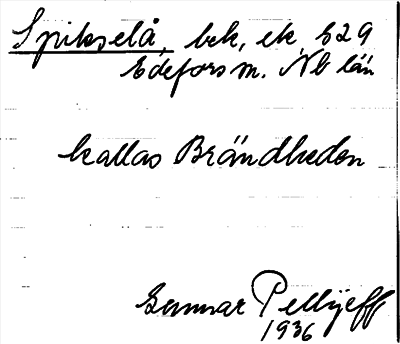 Spikselå, bek, ek 529
Edefors m. Nb län
kallas Brändheden
Gunnar Pellijeff
1936